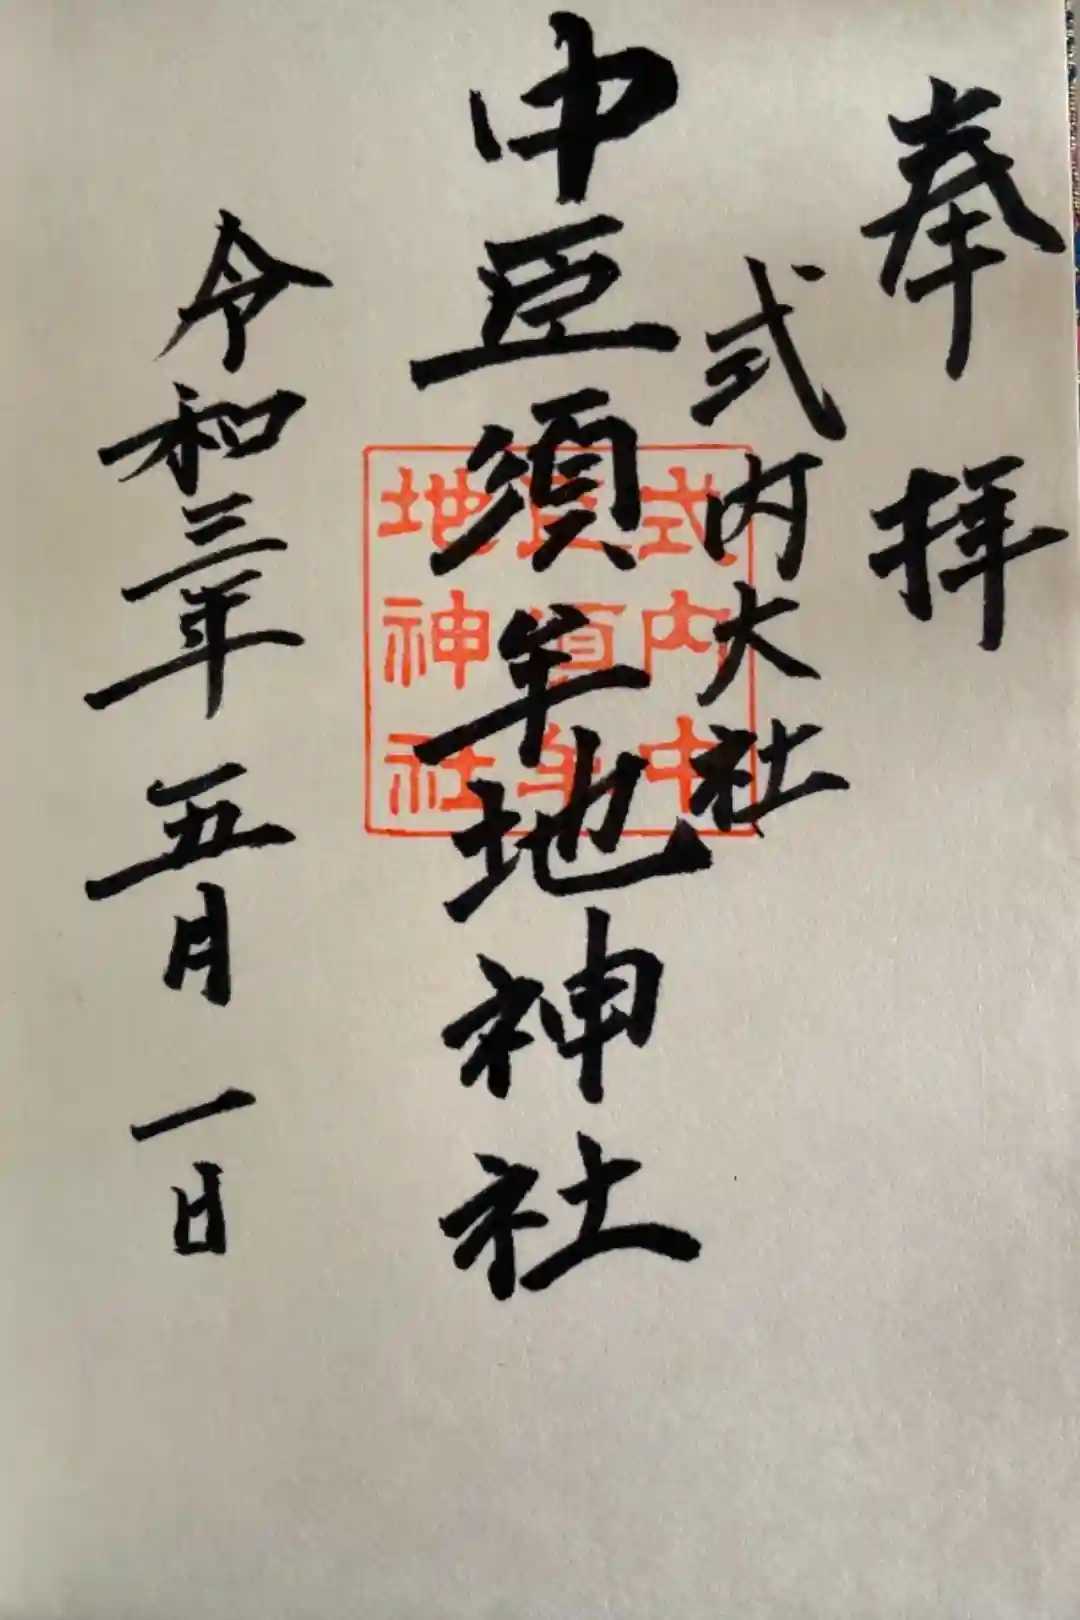 奉拝
式内大社
中臣須牟地神社
令和三年五月一日
式内中
臣須牟
地神社